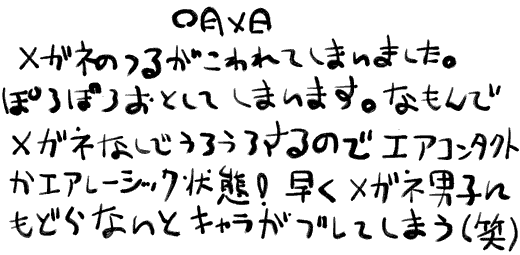 〇月×日
メガネのつるがこわれてしまいました。
ぽろぽろおとしてしまいます。なもんで
メガネなしでうろうろするのでエアコンタクト
かエアレーシック状態！早くメガネ男子に
もどらないとキャラがブレてしまう（笑）